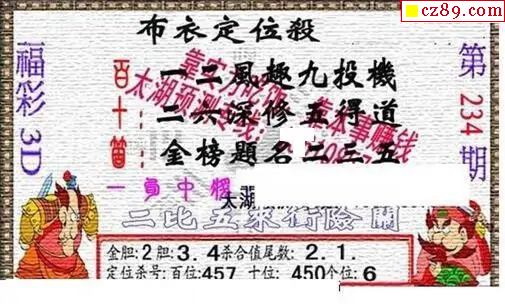 cz89.com
布衣定位殺
福彩3D
第234期
百 一二風趣九投機
十 二六深修五得道
金榜題名二三五
靠实力
靠本事赚钱
太湖预测专线:
太湖
二比五來衝險關
金胆:2胆:3.4杀合值尾数:2.1.
定位杀号:百位:457 十位:450个位:6